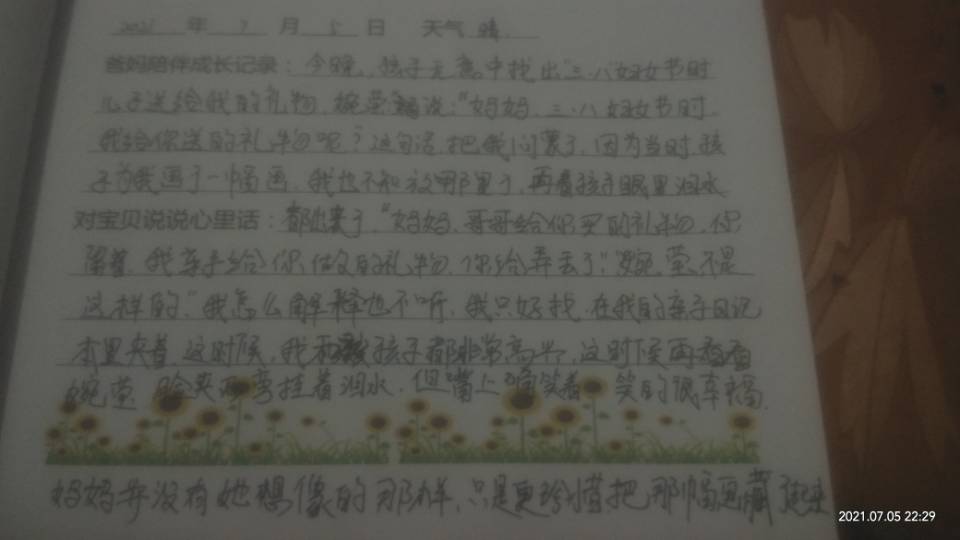 2021 年 7 月 5 日 天气 晴.
爸妈陪伴成长记录：今晚,孩子无意中找出"三.八妇女节时
儿子送给我的礼物,婉莹说:"妈妈,三.八妇女节时.
我给你送的礼物呢?这句话,把我问蒙了,因为当时,孩
子为我画了一幅画,我也不知放哪里了,再看孩子眼里泪水
对宝贝说说心里话：都出来了,"妈妈,哥哥给你买的礼物,你
留着,我亲手给你做的礼物,你给弄丢了"."婉莹,不是
这样的"我怎么解释也不听,我只好找,在我的亲子日记
本里夹着,这时候,我和孩子都非常高兴,这时候再看看
婉莹 脸夹两旁挂着泪水,但嘴上 笑着 笑的很幸福.
妈妈并没有她想像的那样,只是更珍惜把那幅画藏起来
2021.07.05 22:29